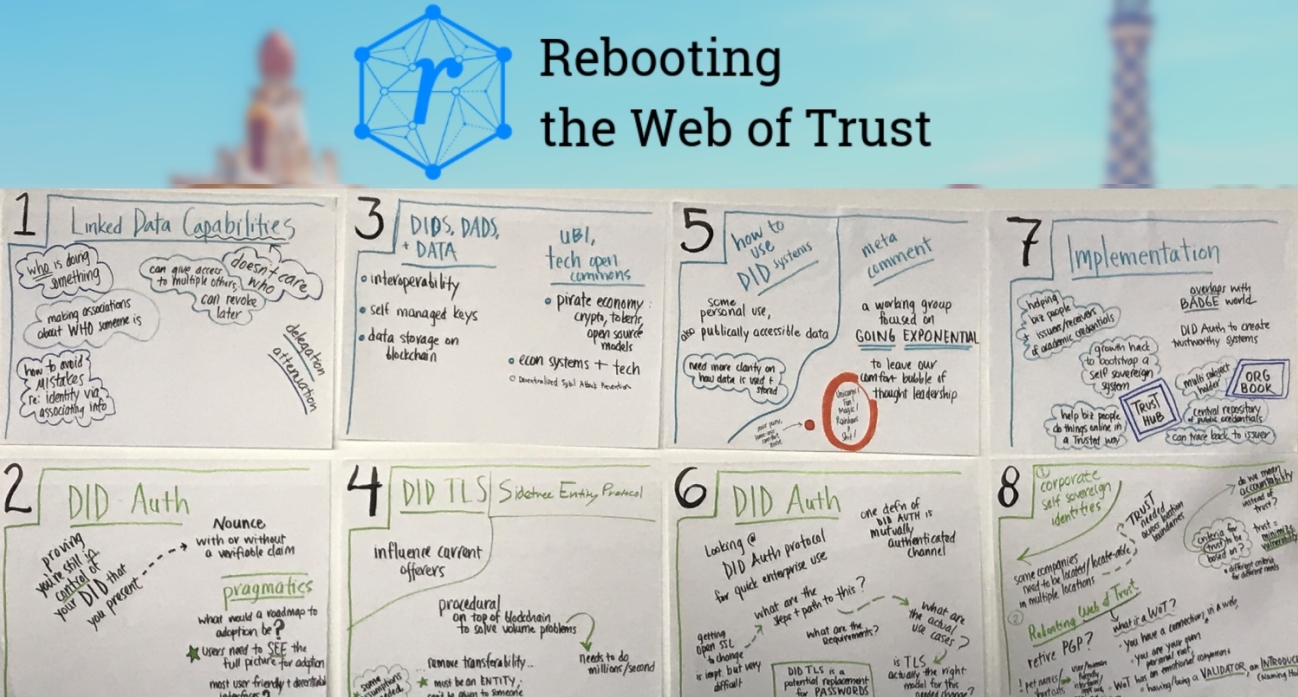 Rebooting
the Web of Trust
1
Linked Data Capabilities
who is doing
something
can give access
to multiple others,
can revoke
later
doesn't care
who
making associations
about WHO someone is
how to avoid
MISTAKES
re: identity via
associating info
delegation
attenuation
3
DIDS, DADS,
+ DATA
• interoperability
• self managed keys
• data storage on
blockchain
UBI,
tech open
commons
• pirate economy:
crypto, tokens,
open source
models
• econ systems + tech
Decentralized Sybil Attack Prevention
5
how to
use
DID systems
some
personal use,
also publically accessible data
need more clarity on
how data is used +
stored
meta
comment
a working group
focused on
GOING EXPONENTIAL
to leave our
comfort bubble of
thought leadership
Unicorns!
Fun!
Magic!
Rainbows
&
Shit!
7
Implementation
helping
biz people
+ issuers/receivers
of academic credentials
growth hack
to bootstrap a
self sovereign
system
help biz people
do things online in
a Trusted way
TRUST
HUB
overlaps with
BADGE world
DID Auth to create
trustworthy systems
multi
holder
ORG
BOOK
central repository
of public credentials
can trace back to issuer
2
DID Auth
proving
you're still in
control of
your DID that
you present
Nounce
with or without
a verifiable claim
pragmatics
what would a roadmap to
adoption be?
★ users need to SEE the
full picture for adoption
most user friendly + decentral
4
DID TLS
Sidetree Entity Protocol
influence current
offerers
procedural
on top of blockchain
to solve volume problems
needs to do
millions/second
remove transferability...
some
assumptions
★ must be an ENTITY,
to someone
6
DID Auth
Looking @
DID Auth protocal
for quick enterprise use
one defn of
DID AUTH is
mutually
authenticated
channel
what are the
steps + path to this?
what are the
Requirements?
what are
the actual
use cases?
getting
open SSL
to change
is impt. but very
difficult
DID TLS is a
potential replacement
for PASSWORDS
is TLS
actually the right
model for this
8
① corporate
self sovereign
identities
some companies
need to be located/locate-able
in multiple locations
TRUST
needed
across location
boundaries
do we mean
accountability
instead of
trust?
criteria for
trust to be
based on?
trust =
minimize
• different criteria
for different needs
② Rebooting Web of Trust
retire PGP?
what is a WoT?
• You have a connections in a web
• You are your own
personal root
• WoT has an emotional component
• having/being a VALIDATOR, an
! pet names/
shortcuts